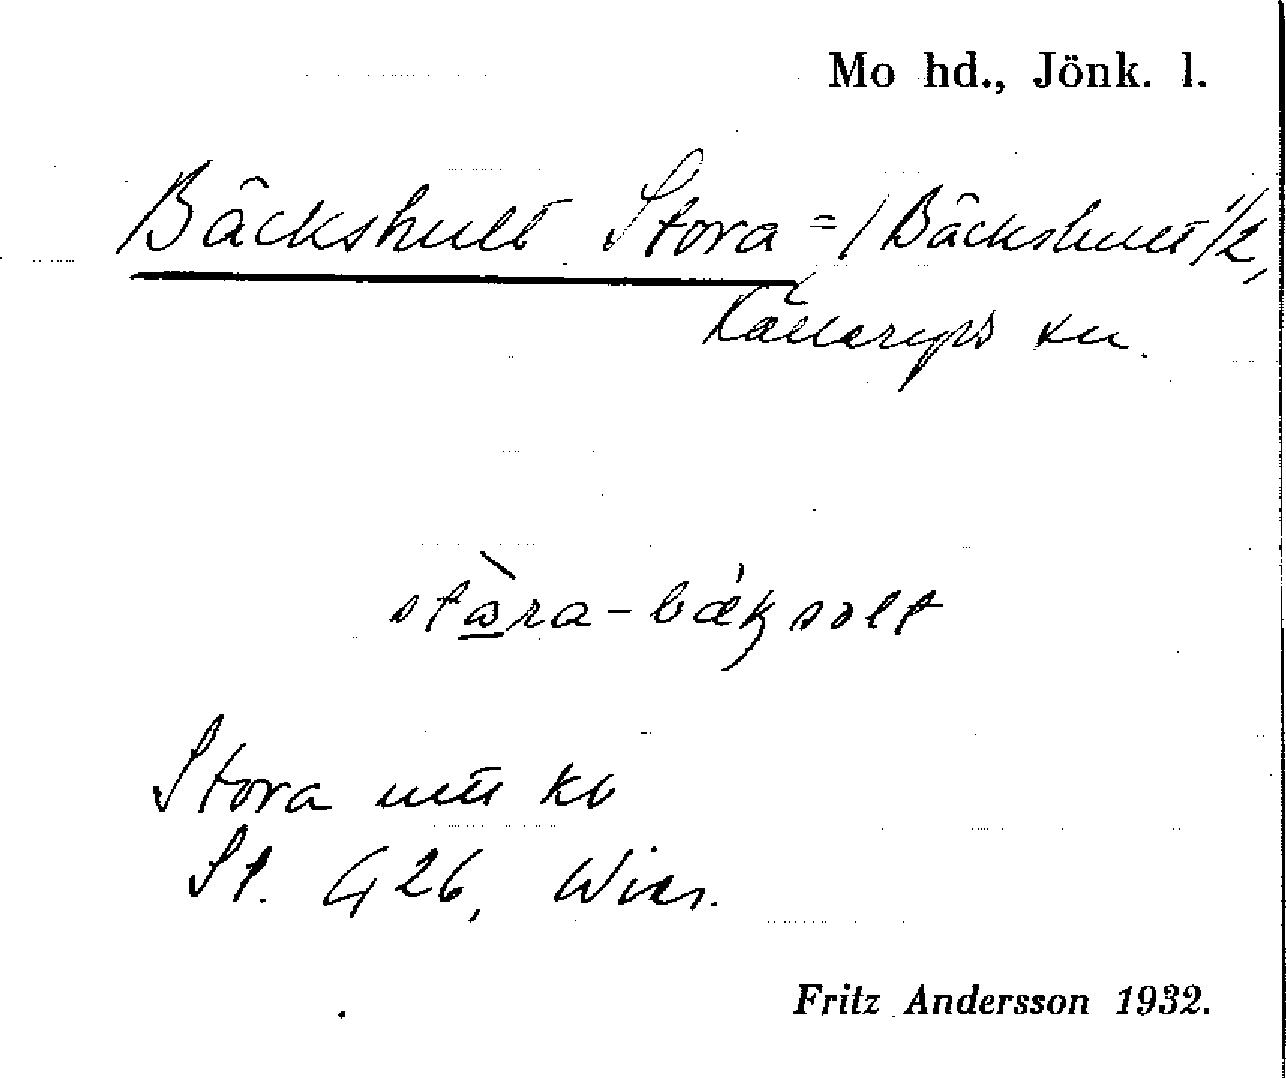 Mo hd., Jönk. l.
Bäckshult Stora = / Bäckshult 1/2,
Källeryds sn.
stòra-bǽksolt
Stora
St. G 26,
Fritz Andersson 1932.